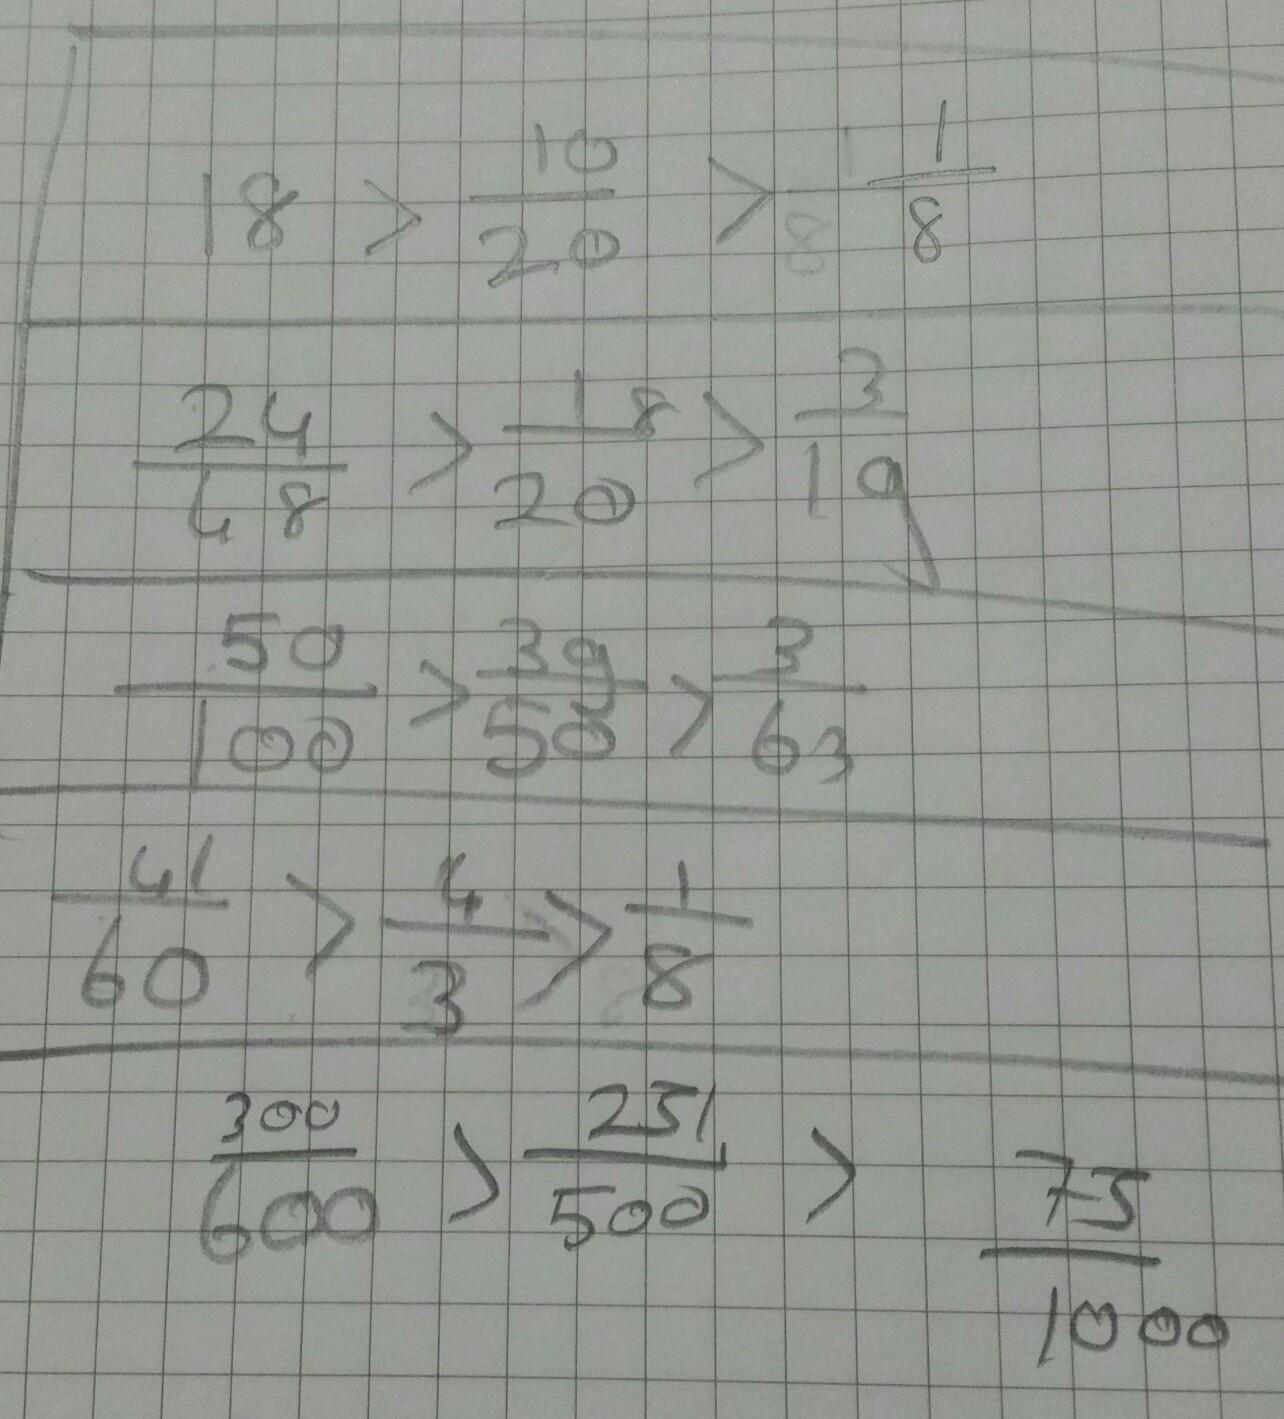 18 > 10/20 > 1/8
24/48 > 18/20 > 3/19
50/100 > 39/50 > 3/63
41/60 > 4/3 > 1/8
300/600 > 251/500 > 75/1000